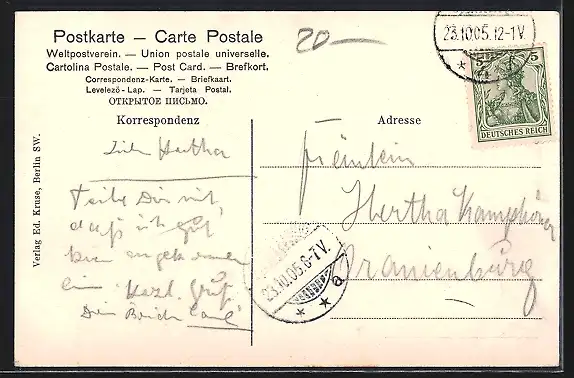 Postkarte – Carte Postale
Weltpostverein. — Union postale universelle.
Cartolina Postale. — Post Card. — Brefkort.
Correspondenz-Karte. — Briefkaart.
Levelező-Lap. — Tarjeta Postal.
ОТКРЫТОЕ ПИСЬМО.
20—
23.10.05.12-1V.
5 5
DEUTSCHES REICH
Korrespondenz
Adresse
Verlag Ed. Kruse, Berlin SW.
Liebe Hertha
Teile Dir mit,
daß ich gut
bin
ein Herzl. Gruß
Dein
Fräulein
Hertha
Oranienburg
23.10.05.6-7V.
* * a